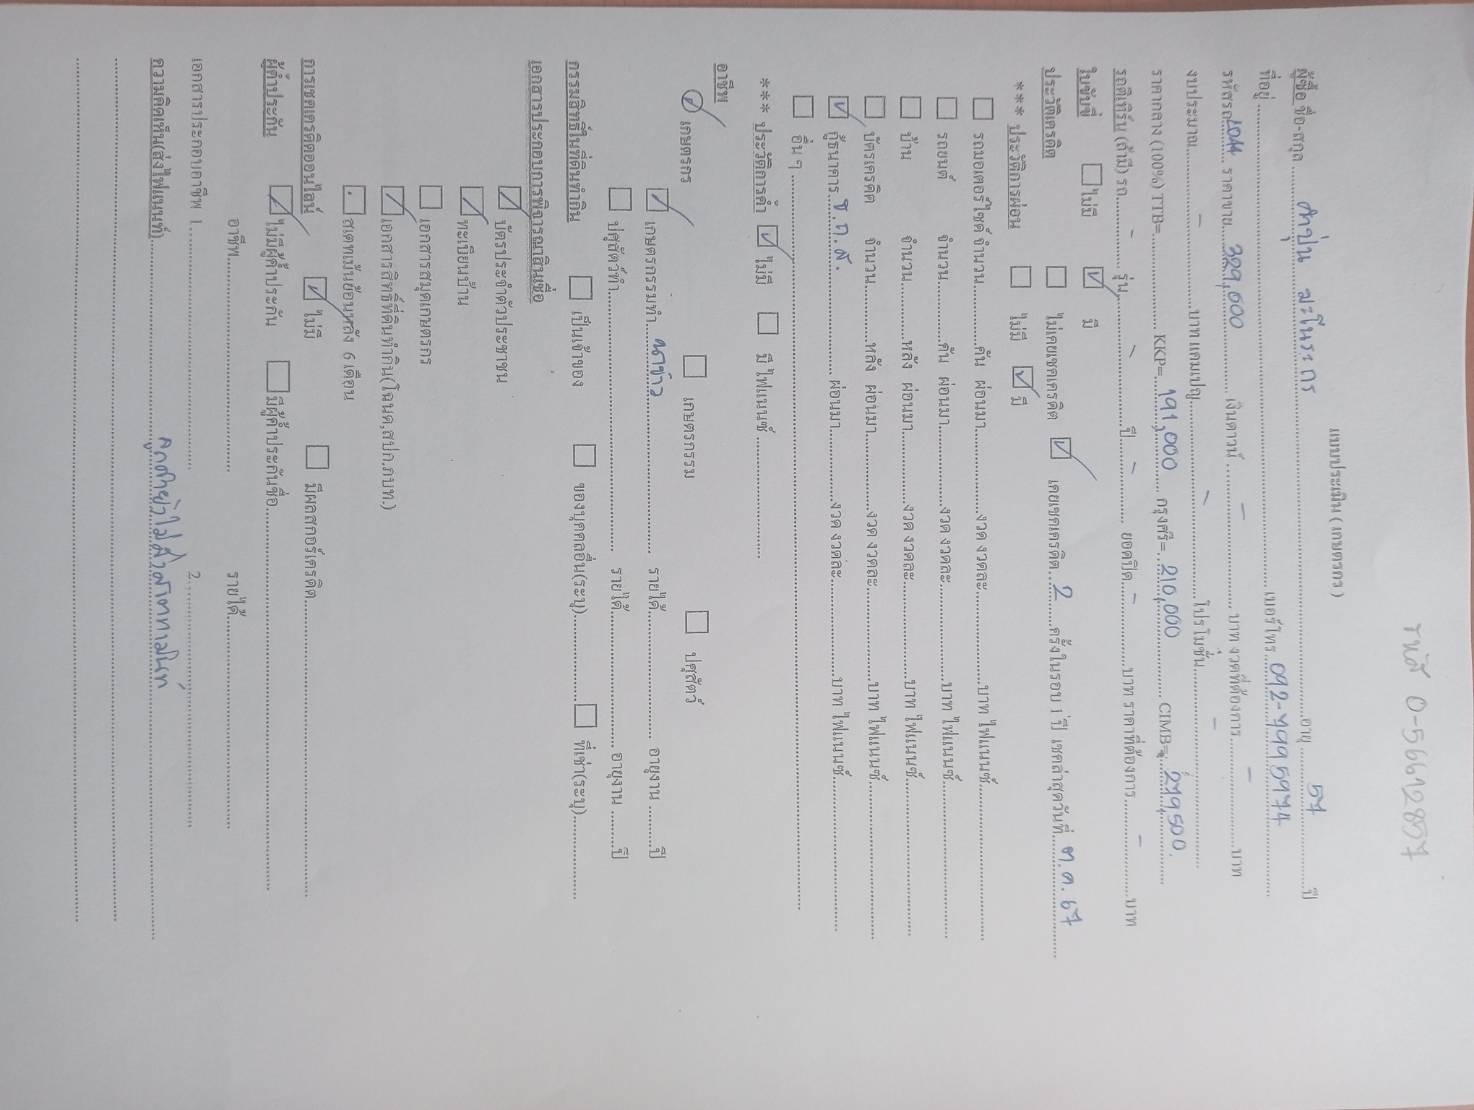 รหัส 0-56612857
แบบประเมิน ( เกษตรกร )
ผู้ซื้อ ชื่อ-สกุล ..... คำปุ่น มะโนระกร ..... อายุ ..... 57 ..... ปี
ที่อยู่ ..... เบอร์โทร..092-4995974
รหัสรถ ..... ราคาขาย.. 329,000 ..... เงินดาวน์ ..... - ..... บาท งวดที่ต้องการ ..... - ..... บาท
งบประมาณ ..... - ..... บาท แคมเปญ ..... - ..... โปรโมชั่น ..... -
ราคากลาง (100%) TTB= ..... KKP= ..191,000 .... กรุงศรี= ..210,000 ..... CIMB= ..219,500.
รถตีเทิร์น (ถ้ามี) รถ ..... - ..... รุ่น ..... - ..... ปี ..... - ..... ยอดปิด ..... - ..... บาท ราคาที่ต้องการ ..... - ..... บาท
ใบขับขี่ ☐ ไม่มี ☑ มี
ประวัติเครดิต ☐ ไม่เคยเชคเครดิต ☑ เคยเชคเครดิต ... 2 ... ครั้งในรอบ 1 ปี เชคล่าสุดวันที่ .. ต.ค. 67
*** ประวัติการผ่อน ☐ ไม่มี ☑ มี
☐ รถมอเตอร์ไซค์ จำนวน ..... คัน ผ่อนมา ..... งวด งวดละ ..... บาท ไฟแนนซ์ .....
☐ รถยนต์ จำนวน ..... คัน ผ่อนมา ..... งวด งวดละ ..... บาท ไฟแนนซ์ .....
☐ บ้าน จำนวน ..... หลัง ผ่อนมา ..... งวด งวดละ ..... บาท ไฟแนนซ์ .....
☐ บัตรเครดิต จำนวน ..... หลัง ผ่อนมา ..... งวด งวดละ ..... บาท ไฟแนนซ์ .....
☑ กู้ธนาคาร ธ.ก.ส. ..... ผ่อนมา ..... งวด งวดละ ..... บาท ไฟแนนซ์ .....
☐ อื่น ๆ .....
*** ประวัติการค้ำ ☑ ไม่มี ☐ มี ไฟแนนซ์ .....
อาชีพ
☑ เกษตรกร ☐ เกษตรกรรม ☐ ปศุสัตว์
☑ เกษตรกรรมทำ ... นาข้าว ..... รายได้ ..... อายุงาน ..... ปี
☐ ปศุสัตว์ทำ ..... รายได้ ..... อายุงาน ..... ปี
กรรมสิทธิ์ในที่ดินทำกิน ☐ เป็นเจ้าของ ☐ ของบุคคลอื่น(ระบุ) ..... ☐ ที่เช่า(ระบุ) .....
เอกสารประกอบการพิจารณาสินเชื่อ
☑ บัตรประจำตัวประชาชน
☑ ทะเบียนบ้าน
☐ เอกสารสมุดเกษตรกร
☑ เอกสารสิทธิ์ที่ดินทำกิน(โฉนด,สปก,ภบท.)
☐ สเตทเม้นย้อนหลัง 6 เดือน
การเชคเครดิตออนไลน์ ☑ ไม่มี ☐ มีผลสกอร์เครดิต .....
ผู้ค้ำประกัน ☑ ไม่มีผู้ค้ำประกัน ☐ มีผู้ค้ำประกันชื่อ .....
อาชีพ ..... รายได้ .....
เอกสารประกอบอาชีพ 1. ..... 2. .....
ความคิดเห็น(ส่งไฟแนนท์) ..... ลูกค้า